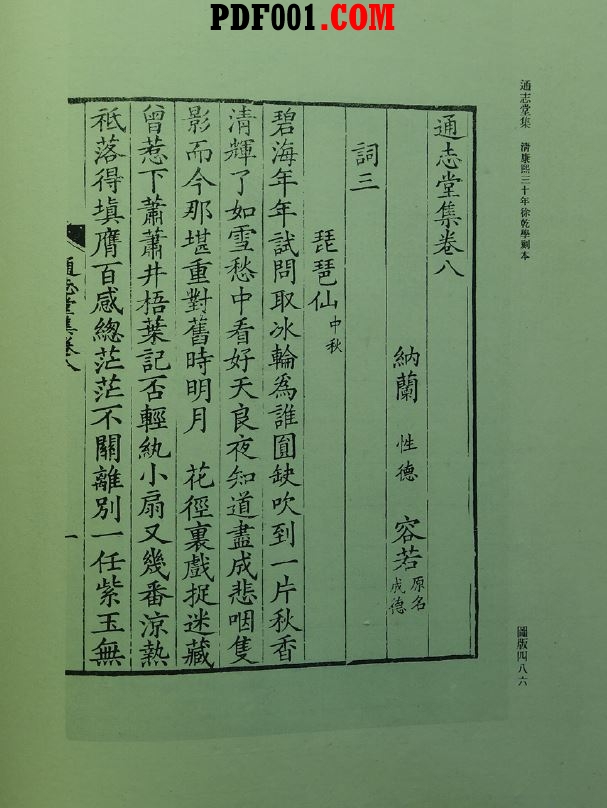 PDF001.COM
通志堂集　清康熙三十年徐乾學刻本
圖版四八六
通志堂集卷八
納蘭　性德　容若　原名成德
詞三
琵琶仙　中秋
碧海年年試問取冰輪爲誰圓缺吹到一片秋香
清輝了如雪愁中看好天良夜知道盡成悲咽隻
影而今那堪重對舊時明月　花徑裏戲捉迷藏
曾惹下蕭蕭井梧葉記否輕紈小扇又幾番涼熱
祗落得塡膺百感總茫茫不關離別一任紫玉無
通志堂集卷八
一